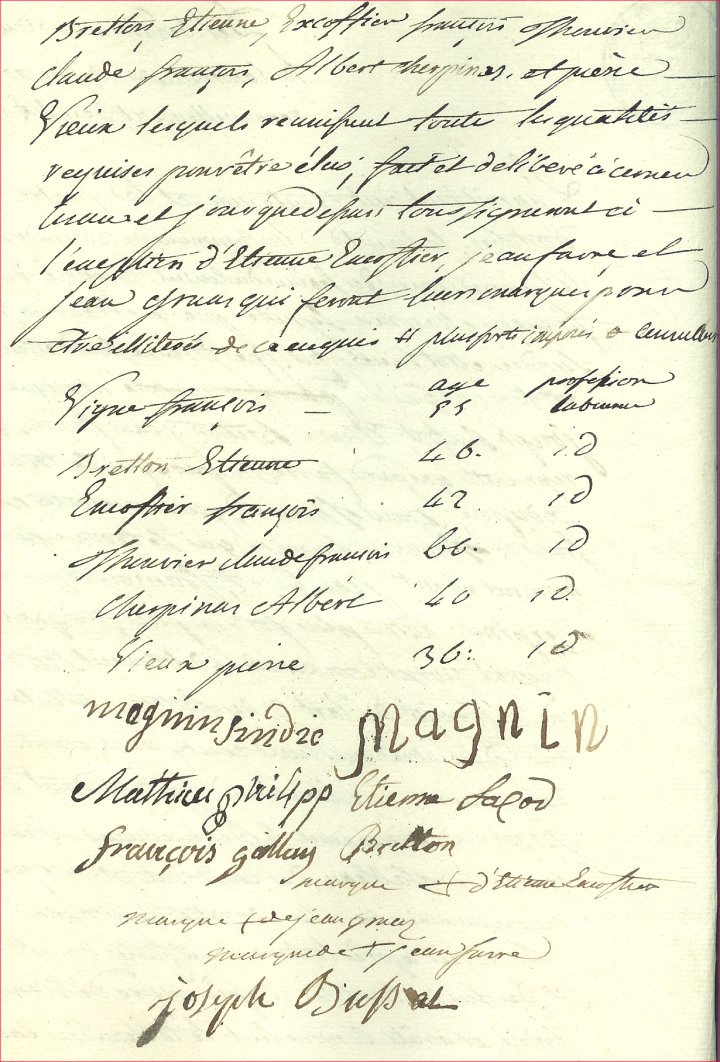 Bretton Etienne, Excoffier françois Thouvier
claude françois, Albert cherpinas, et pierre
Vieux lesquels reunissent toute les qualités
requises pour être élus, fait et deliberé à cernex
les an et jour que dessus tous signeront à
l'exception d'Etienne Encoffier, jean favre et
jean gruaz qui feront leurs marques pour
etre illiterés de ce enquis # plus forts imposés
age profession
Vigne françois — 55 laboureur
Bretton Etienne 46. id
Encoffier françois 42 id
Thouvier claude francois 66. id
Cherpinas Albert 40 id.
Vieux pierre 36: id
magnin sindic magnin
Mathieu philipp Etienne Sacod
françois gallay Bretton
marque + d'Etienne Encoffier
marque + de jean gruaz
marque de + jean favre
joseph Bussat